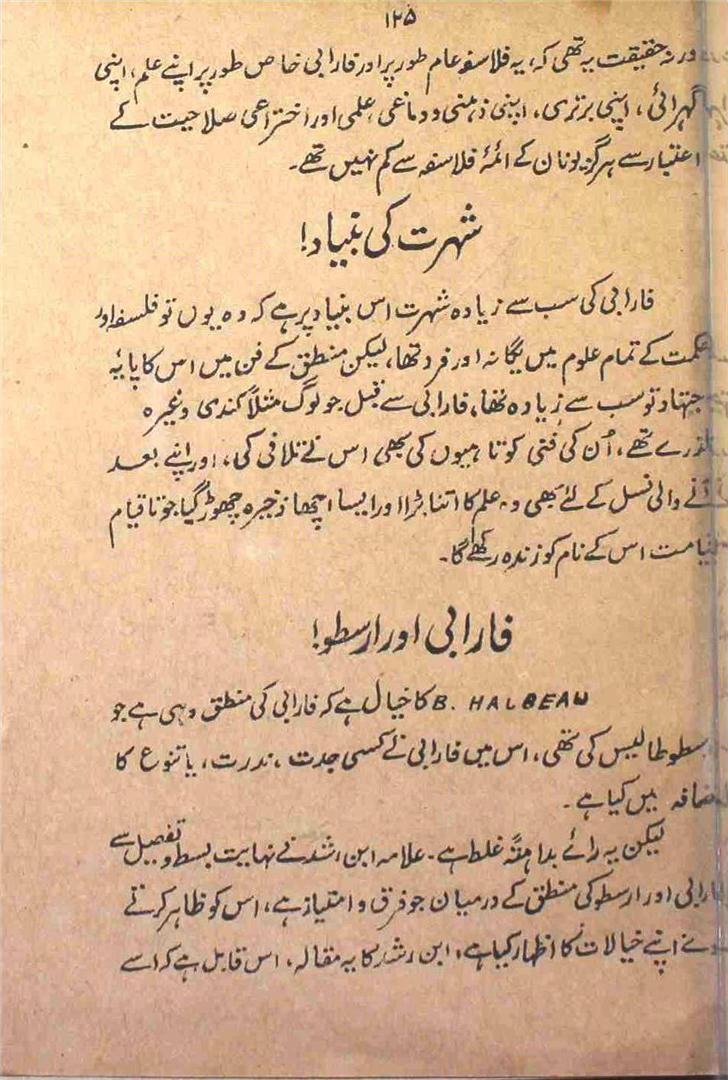 ۱۲۵
ورنہ حقیقت یہ تھی کہ، یہ فلاسفہ عام طور پر اور فارابی خاص طور پر اپنے علم، اپنی
گہرائی، اپنی برتری، اپنی ذہنی و دماغی، علمی اور اختراعی صلاحیت کے
اعتبار سے ہرگز یونان کے ائمۂ فلاسفہ سے کم نہیں تھے۔
شہرت کی بنیاد!
فارابی کی سب سے زیادہ شہرت اس بنیاد پر ہے کہ وہ یوں تو فلسفہ اور
حکمت کے تمام علوم میں یگانہ اور فرد تھا، لیکن منطق کے فن میں اس کا پایۂ
اجتہاد تو سب سے زیادہ تھا، فارابی سے قبل جو لوگ مثلاً کندی وغیرہ
گذرے تھے، اُن کی فنی کوتاہیوں کی بھی اس نے تلافی کی، اور اپنے بعد
آنے والی نسل کے لئے بھی وہ علم کا اتنا بڑا اور ایسا اچھا ذخیرہ چھوڑ گیا جو تا قیام
قیامت اس کے نام کو زندہ رکھے گا۔
فارابی اور ارسطو!
B. HALBEAU کا خیال ہے کہ فارابی کی منطق وہی ہے جو
ارسطوطالیس کی تھی، اس میں فارابی نے کسی جدت، ندرت، یا تنوع کا
اضافہ نہیں کیا ہے۔
لیکن یہ رائے بداہتہً غلط ہے۔ علامہ ابن رشد نے نہایت بسط و تفصیل سے
فارابی اور ارسطو کی منطق کے درمیان جو فرق و امتیاز ہے، اس کو ظاہر کرتے
ہوئے اپنے خیالات کا اظہار کیا ہے، ابن رشد کا یہ مقالہ، اس قابل ہے کہ اسے